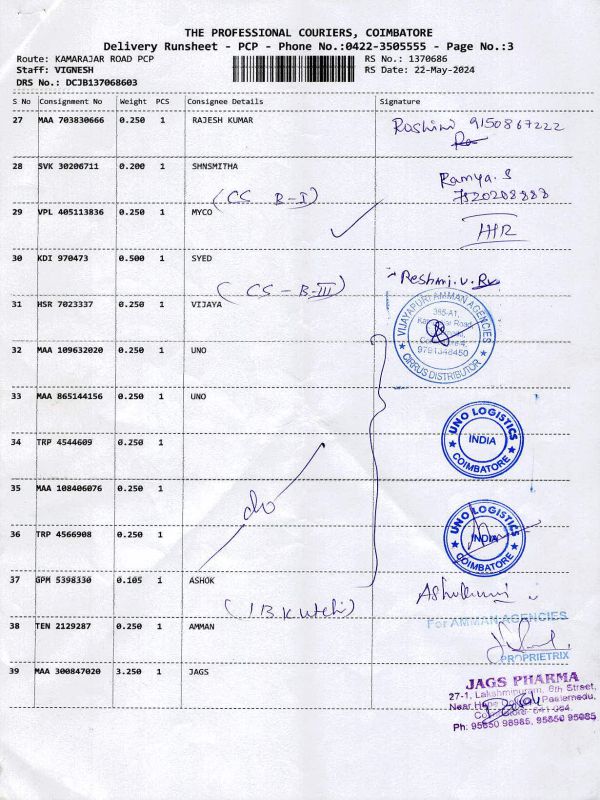 THE PROFESSIONAL COURIERS, COIMBATORE
Delivery Runsheet - PCP - Phone No.:0422-3505555 - Page No.:3
Route: KAMARAJAR ROAD PCP
RS No.: 1370686
Staff: VIGNESH
RS Date: 22-May-2024
DRS No.: DCJB137068603
S No Consignment No Weight PCS Consignee Details Signature
27 MAA 703830666 0.250 1 RAJESH KUMAR
Roshini 9150867222
28 SVK 30206711 0.200 1 SHNSMITHA
Ramya.S
7520208888
(CS B-I)
29 VPL 405113836 0.250 1 MYCO
30 KDI 970473 0.500 1 SYED
Reshmi.V.
(CS-B-III)
31 HSR 7023337 0.250 1 VIJAYA
VIJAYAPURI AMMAN AGENCIES
385-A1,
Road,
9791348450
CIRRUS DISTRIBUTOR
32 MAA 109632020 0.250 1 UNO
33 MAA 865144156 0.250 1 UNO
UNO LOGISTICS
INDIA
COIMBATORE
34 TRP 4544609 0.250 1
35 MAA 108406076 0.250 1
do
UNO LOGISTICS
INDIA
COIMBATORE
36 TRP 4566908 0.250 1
37 GPM 5398330 0.105 1 ASHOK
For AMMAN AGENCIES
38 TEN 2129287 0.250 1 AMMAN
PROPRIETRIX
39 MAA 300847020 3.250 1 JAGS
JAGS PHARMA
27-1, Lakshmipuram, 6th Street,
Near Peelamedu,
641 004.
Ph: 95850 98985, 95850 95085